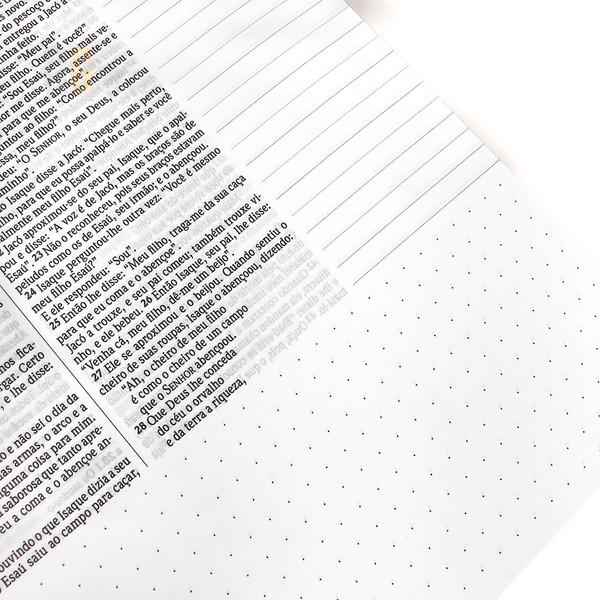 nos fica-
Certo
e lhe disse:
e não sei o dia da
armas, o arco e a
coisa para mim.
saborosa que tanto apre-
a coma e o abençoe an-
ouvindo o que Isaque dizia a seu
Esaú saiu ao campo para caçar,
novo.
do pescoço
entregou a Jacó a
feito.
disse: “Meu pai”.
filho. Quem é você?”
Sou Esaú, seu filho mais ve-
me disse. Agora, assente-se e
para que me abençoe”.
ao filho: “Como encontrou a
meu filho?”
“O SENHOR, o seu Deus, a colocou
Isaque disse a Jacó: “Chegue mais perto,
filho, para que eu possa apalpá-lo e saber se você
meu filho Esaú”.
Jacó aproximou-se do seu pai, Isaque, que o apal-
pou e disse: “A voz é de Jacó, mas os braços são de
Esaú”. 23 Não o reconheceu, pois seus braços estavam
peludos como os de Esaú, seu irmão; e o abençoou.
24 Isaque perguntou-lhe outra vez: “Você é mesmo
meu filho Esaú?”
E ele respondeu: “Sou”.
25 Então lhe disse: “Meu filho, traga-me da sua caça
para que eu coma e o abençoe”.
Jacó a trouxe, e seu pai comeu; também trouxe vi-
nho, e ele bebeu. 26 Então Isaque, seu pai, lhe disse:
“Venha cá, meu filho, dê-me um beijo”.
27 Ele se aproximou e o beijou. Quando sentiu o
cheiro de suas roupas, Isaque o abençoou, dizendo:
“Ah, o cheiro de meu filho
é como o cheiro de um campo
que o SENHOR abençoou.
28 Que Deus lhe conceda
do céu o orvalho
e da terra a riqueza,